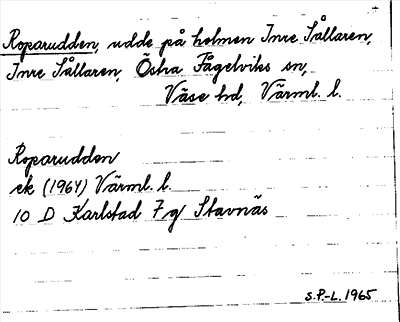 Roparudden, udde på holmen Inre Sållaren,
Inre Sållaren, Östra Fågelviks sn,
Väse hd, Värml. l.
Roparudden
ek (1964) Värml. l.
10 D Karlstad 7 g Stavnäs
S.P.-L. 1965